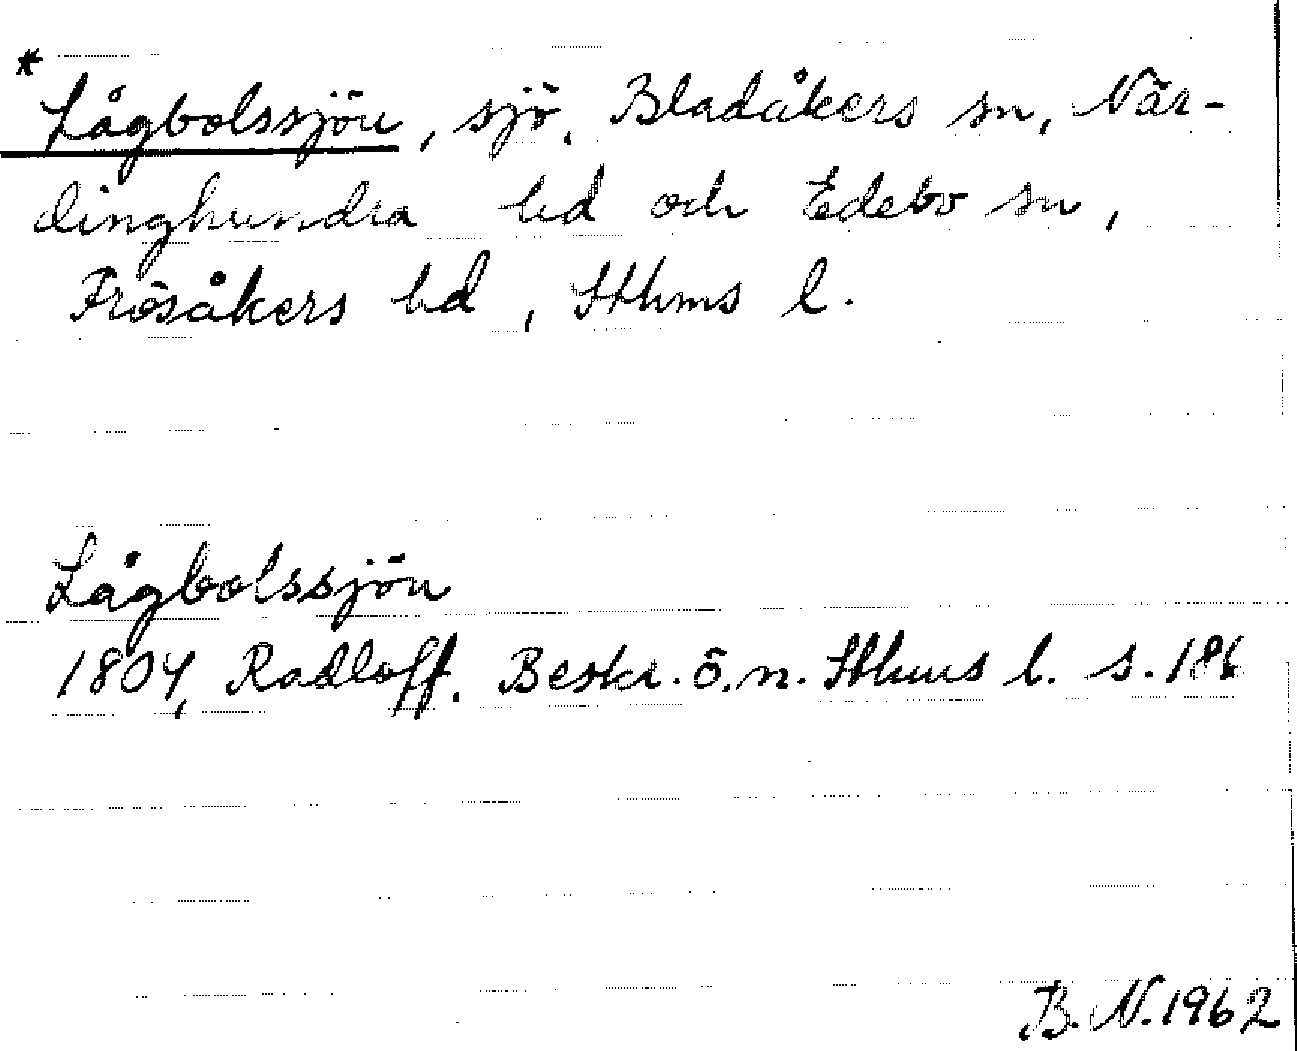 * Lågbolssjön, sjö, Bladåkers sn, När-
dinghundra hd och Edebo sn,
Frösåkers hd, Sthms l.
Lågbolssjön
1804, Radloff. Beskr. ö. n. Sthms l. s. 186
B. N. 1962